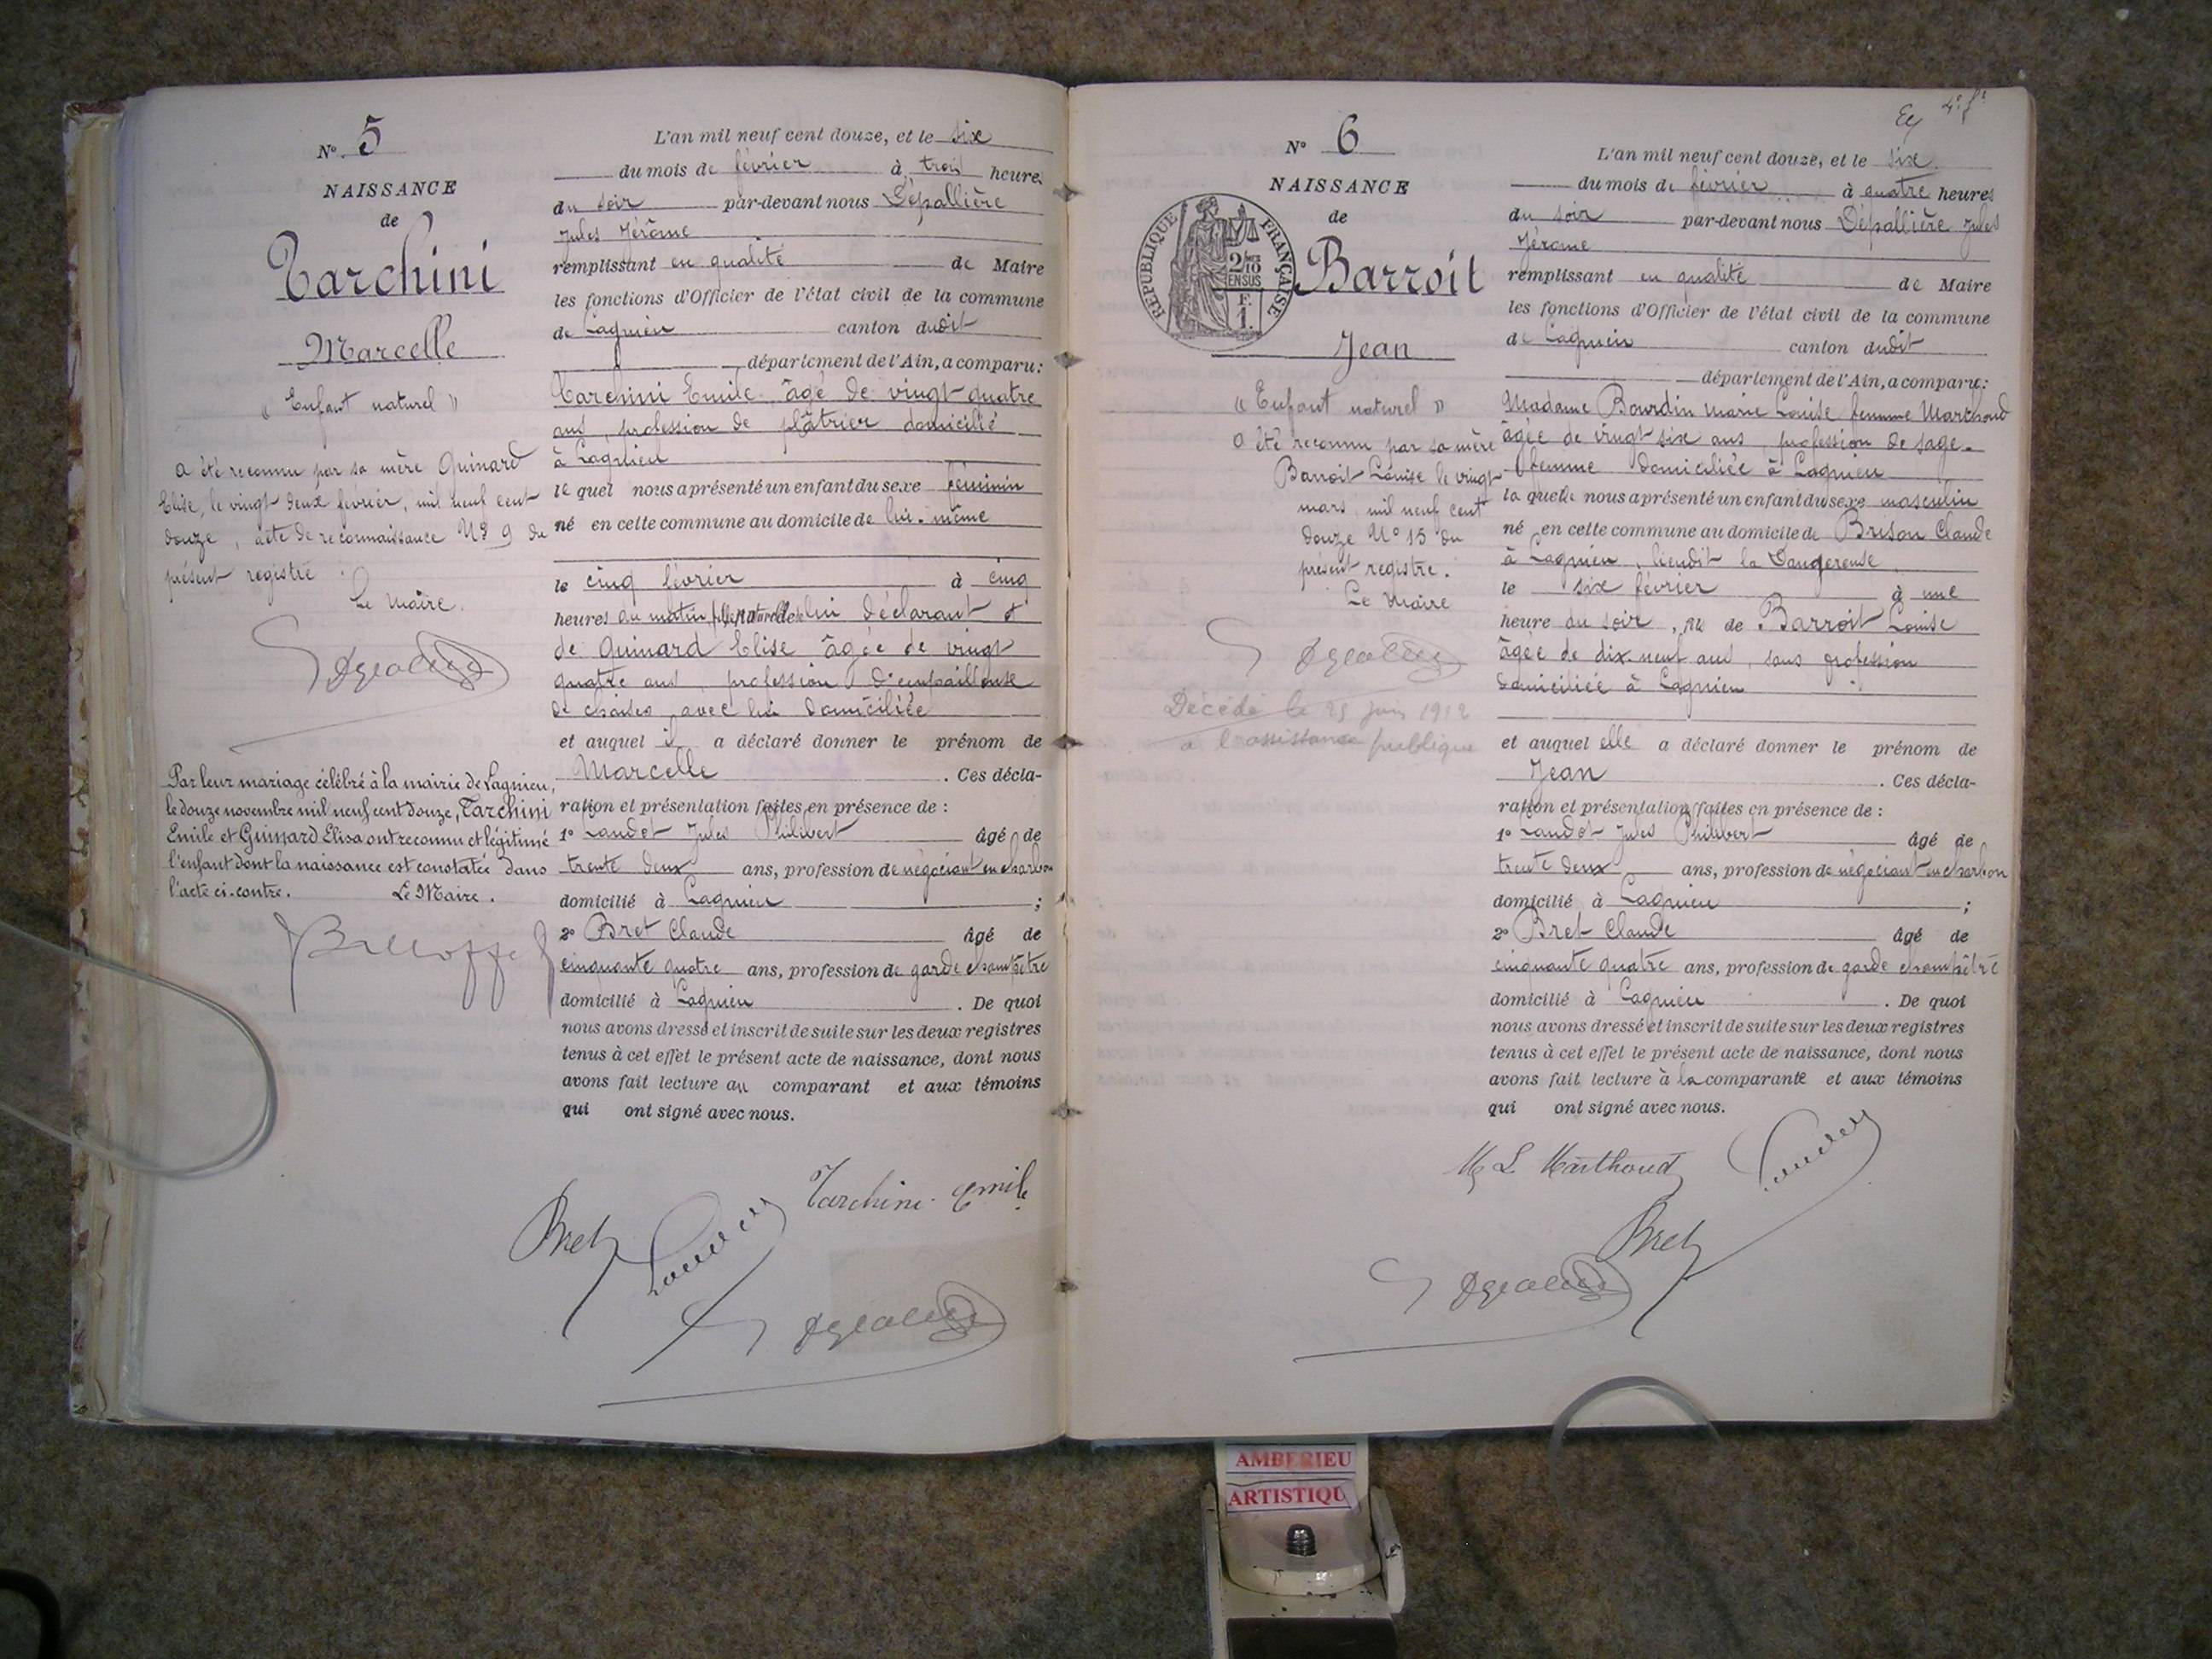 N° 5
NAISSANCE
de
Tarchini
Marcelle
« Enfant naturel »
a été reconnu par sa mère Guinard
Elise, le vingt deux février, mil neuf cent
douze, acte de reconnaissance N° 9 du
présent registre.
Le Maire.
Par leur mariage célébré à la mairie de Lagnieu,
le douze novembre mil neuf cent douze, Tarchini
Emile et Guinard Elisa ont reconnu et légitimé
l'enfant dont la naissance est constatée dans
l'acte ci-contre. Le Maire.
L'an mil neuf cent douze, et le six
du mois de février à trois heures
du soir par-devant nous Dépallière
Jules Jérôme
remplissant en qualité de Maire
les fonctions d'Officier de l'état civil de la commune
de Lagnieu canton dudit
département de l'Ain, a comparu:
Tarchini Emile âgé de vingt-quatre
ans, profession de plâtrier domicilié
à Lagnieu
le quel nous a présenté un enfant du sexe féminin
né en cette commune au domicile de lui-même
le cinq février à cinq
heures du matin, fille naturelle de lui déclarant et
de Guinard Elise âgée de vingt
quatre ans, profession d'empailleuse
de chaises avec lui domiciliée
et auquel il a déclaré donner le prénom de
Marcelle. Ces décla-
ration et présentation faites en présence de :
1° Landot Jules Philibert âgé de
trente deux ans, profession de négociant en charbon
domicilié à Lagnieu ;
2° Bret Claude âgé de
cinquante quatre ans, profession de garde champêtre
domicilié à Lagnieu. De quoi
nous avons dressé et inscrit de suite sur les deux registres
tenus à cet effet le présent acte de naissance, dont nous
avons fait lecture au comparant et aux témoins
qui ont signé avec nous.
Tarchini Emile
Bret
N° 6
NAISSANCE
de
RÉPUBLIQUE FRANÇAISE
2/10 EN SUS
F. 1.
Barroit
Jean
« Enfant naturel »
a été reconnu par sa mère
Barroit Louise le vingt
mars mil neuf cent
douze N° 15 du
présent registre.
Le Maire
Décédé le 25 juin 1912
à l'assistance publique
L'an mil neuf cent douze, et le six
du mois de février à quatre heures
du soir par-devant nous Dépallière Jules
Jérome
remplissant en qualité de Maire
les fonctions d'Officier de l'état civil de la commune
de Lagnieu canton dudit
département de l'Ain, a comparu:
Madame Bourdin Marie Louise femme Marthoud
âgée de vingt-six ans, profession de sage-
femme domiciliée à Lagnieu
la quelle nous a présenté un enfant du sexe masculin
né en cette commune au domicile de Brison Claude
à Lagnieu, lieudit la Dangereuse
le six février à une
heure du soir, fils de Barroit Louise
âgée de dix-neuf ans, sans profession
domiciliée à Lagnieu
et auquel elle a déclaré donner le prénom de
Jean. Ces décla-
ration et présentation faites en présence de :
1° Landot Jules Philibert âgé de
trente deux ans, profession de négociant en charbon
domicilié à Lagnieu ;
2° Bret Claude âgé de
cinquante quatre ans, profession de garde champêtre
domicilié à Lagnieu. De quoi
nous avons dressé et inscrit de suite sur les deux registres
tenus à cet effet le présent acte de naissance, dont nous
avons fait lecture à la comparante et aux témoins
qui ont signé avec nous.
M L Marthoud
Bret
AMBERIEU
ARTISTIQU